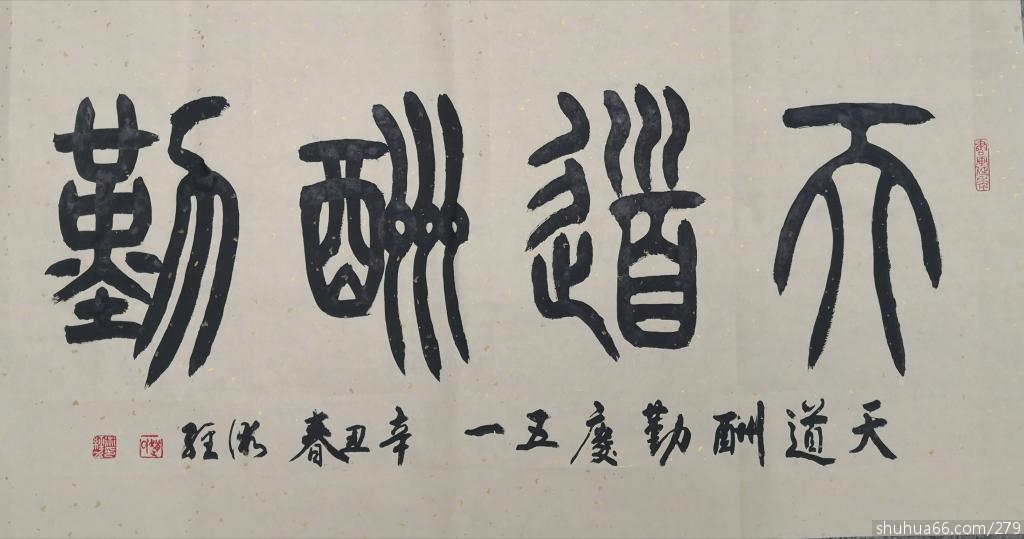 天道酬勤
天道酬勤 慶五一 辛丑春
shuhua66.com/279